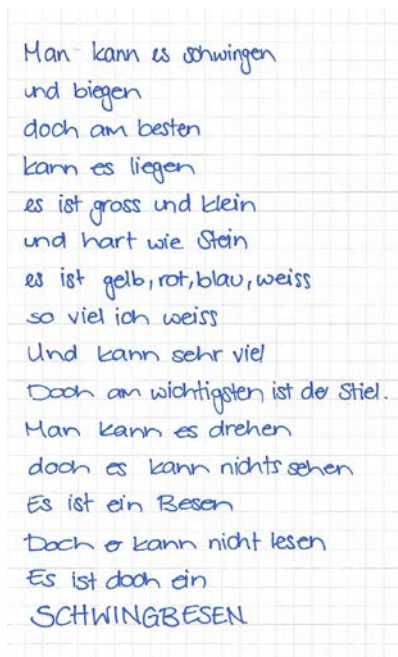 Man kann es schwingen
und biegen
doch am besten
kann es liegen
es ist gross und klein
und hart wie Stein
es ist gelb, rot, blau, weiss
so viel ich weiss
Und kann sehr viel
Doch am wichtigsten ist der Stiel.
Man kann es drehen
doch es kann nichts sehen
Es ist ein Besen
Doch er kann nicht lesen
Es ist doch ein
SCHWINGBESEN